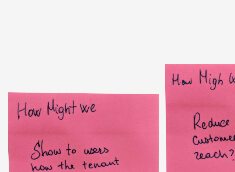 How Might we
Show to users
how the tenant
How Migh
Reduce
Custome
reach?